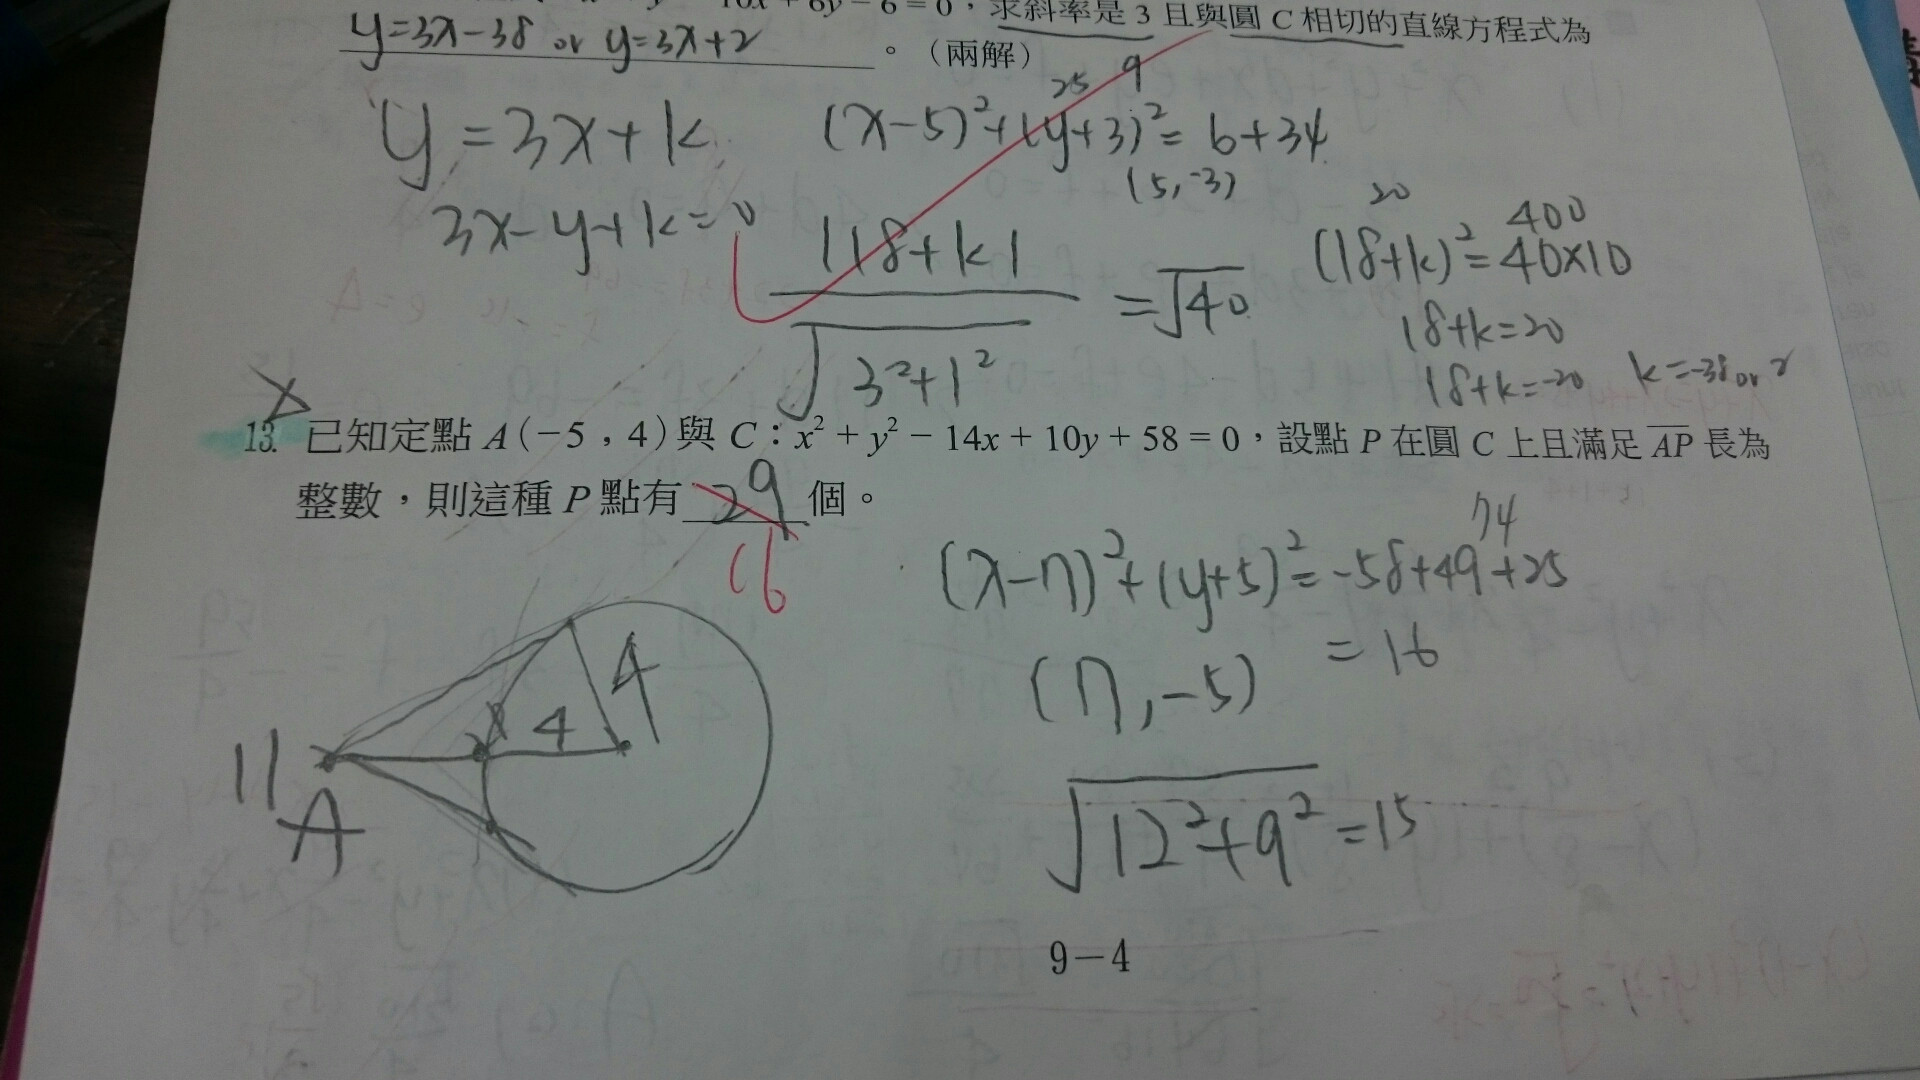 10x + 6y − 6 = 0，求斜率是 3 且與圓 C 相切的直線方程式為
y=3x-38 or y=3x+2 。（兩解）
25 9
y=3x+k (x-5)²+(y+3)²=6+34
(5,-3)
3x-y+k=0
|18+k| / √(3²+1²) = √40
20 400
(18+k)²=40×10
18+k=20
18+k=-20 k=-38 or 2
13. 已知定點 A（−5，4）與 C：x² + y² − 14x + 10y + 58 = 0，設點 P 在圓 C 上且滿足 AP 長為
整數，則這種 P 點有 29 個。
16
74
(x-7)²+(y+5)²=-58+49+25
=16
(7,-5)
4
4
11
A
√(12²+9²)=15
9−4